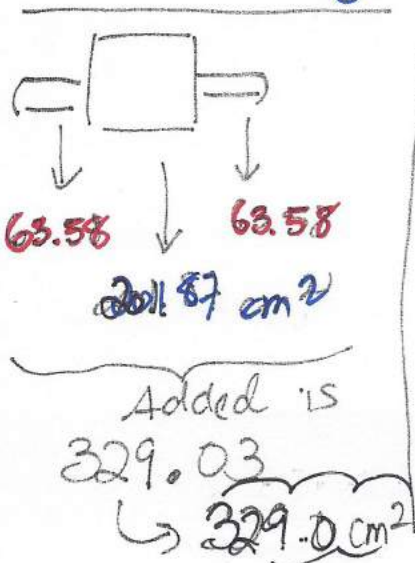 63.58 63.58
201.87 cm²
Added is
329.03
↳ 329.0 cm²